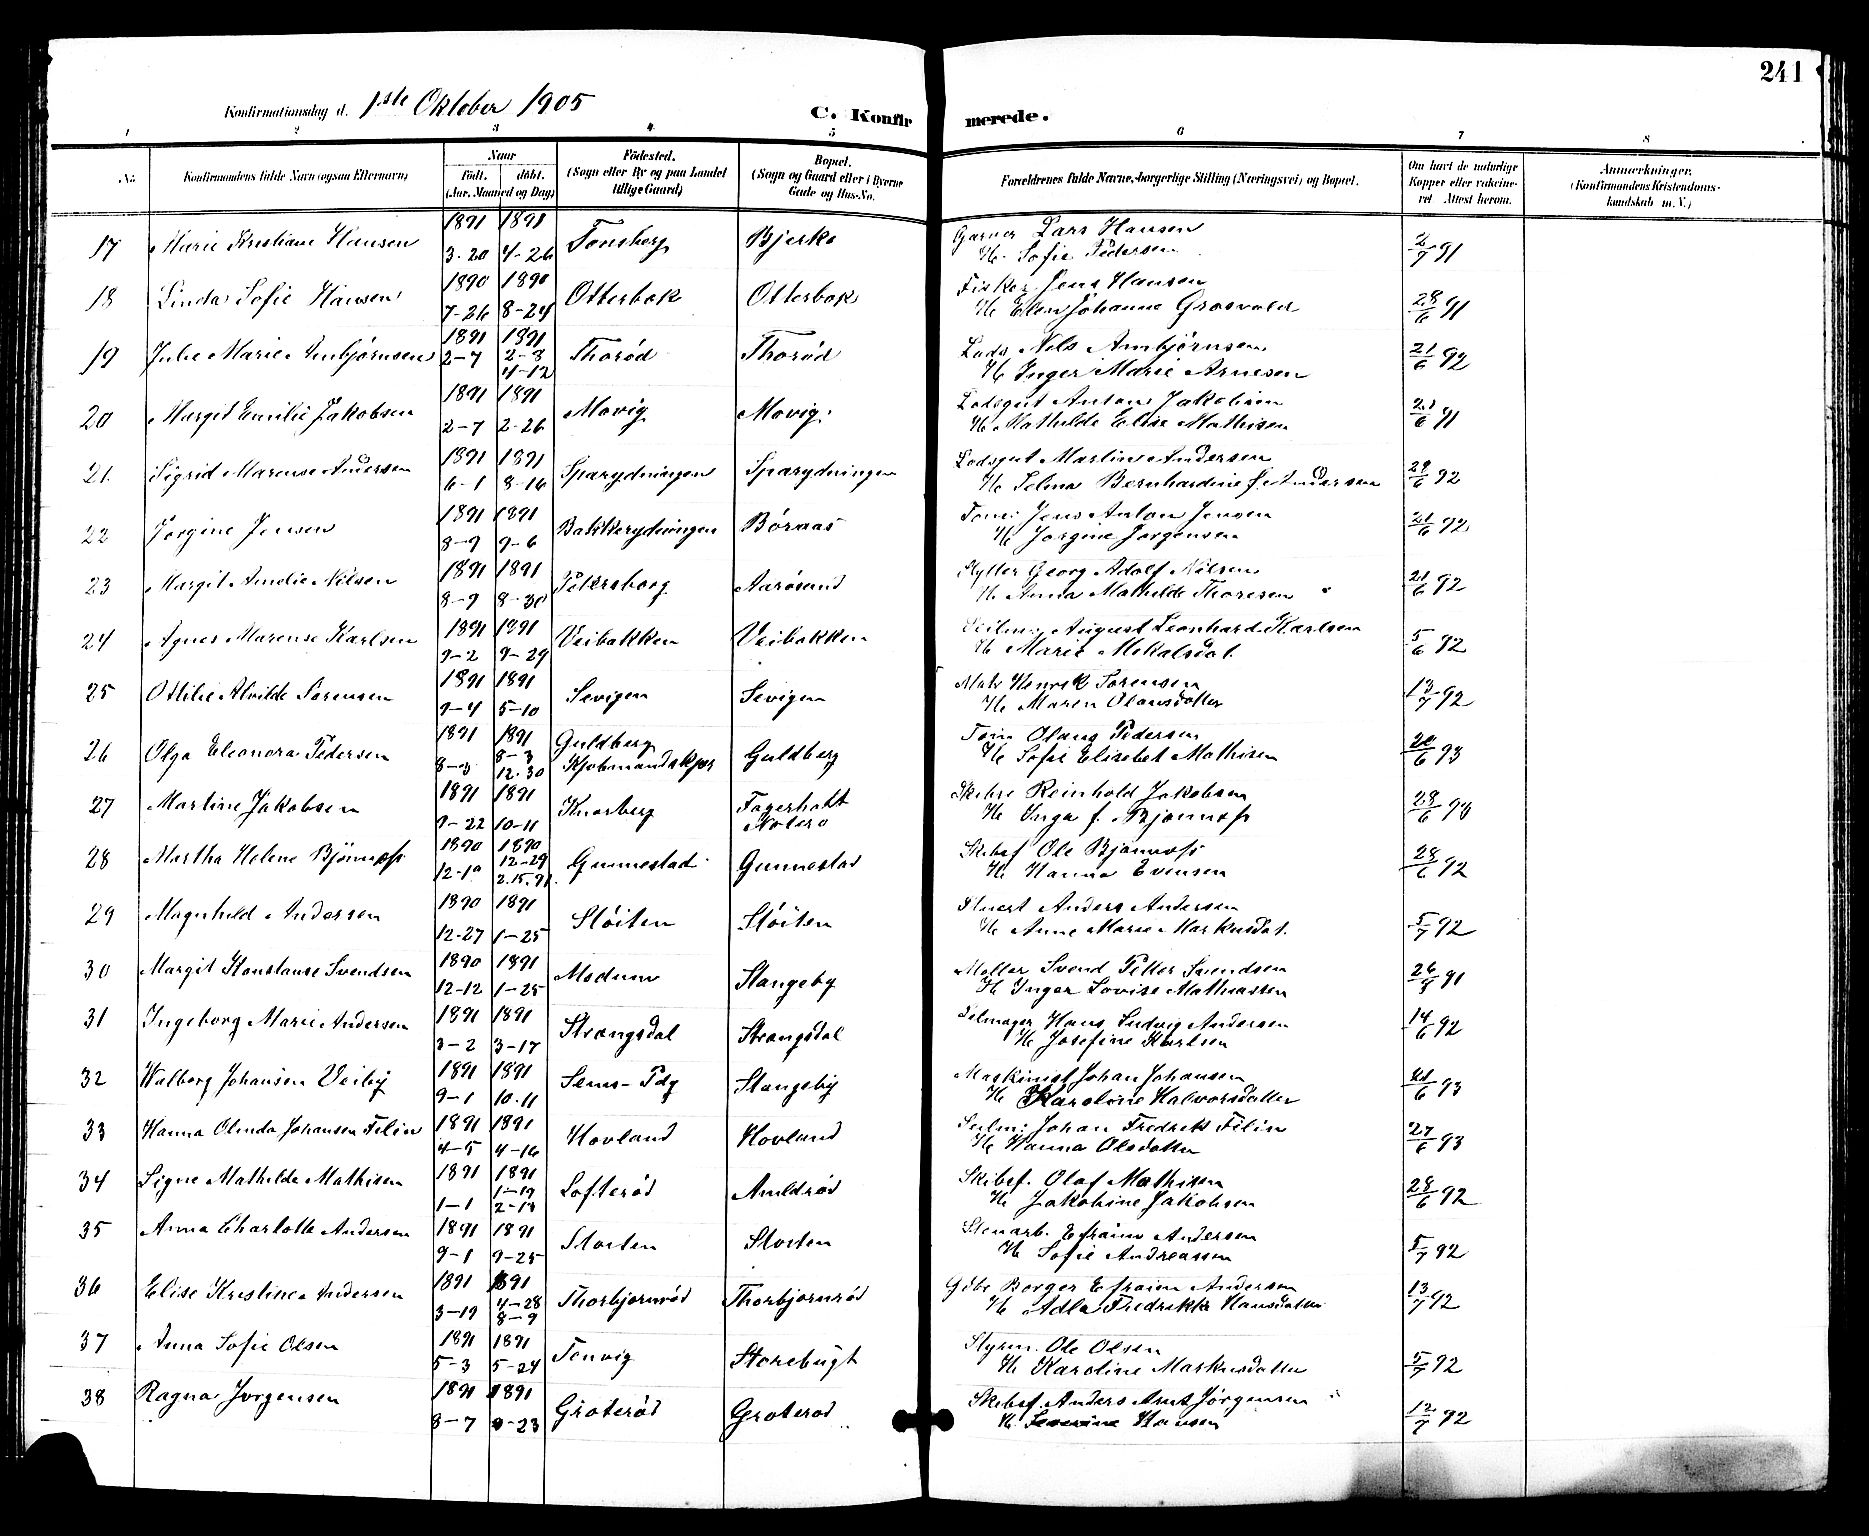 241
Konfirmationsdag d. 1ste Oktober 1905 C. Konfirmerede.
1 2 3 4 5 6 7 8
No. Konfirmandens fulde Navn (ogsaa Efternavn) Naar Födt. döbt. (Aar, Maaned og Dag) Födested. (Sogn eller By og paa Landet tillige Gaard) Bopæl. (Sogn og Gaard eller i Byerne Gade og Hus-No. Forældrenes fulde Navne, borgerlige Stilling (Næringsvei) og Bopæl. Om havt de naturlige Kopper eller vakcineret Attest herom. Anmerkninger. (Konfirmandens Kristendomskundskab m. V.)
17 Marie Kristiane Hansen 1891 3-20 1891 4-26 Tønsberg Bjerkø Garver Lars Hansen
H. Sofie Pedersen 2/7 91
18 Linda Sofie Hansen 1890 7-26 1890 8-24 Otterbæk Otterbæk Fisker Jens Hansen
H Elen Johanne Grosvold 28/6 91
19 Julie Marie Ambjørnsen 1891 2-7 1891 2-8 4-12 Thorød Thorød Lods Nils Ambjørnsen
H Inger Marie Arnesen 21/6 92
20 Margit Emilie Jakobsen 1891 2-7 1891 2-26 Movig Movig Lodsgut Anton Jakobsen
H Mathilde Elise Mathisen 21/6 91
21 Sigrid Marense Andersen 1891 6-1 1891 8-16 Sparydningen Sparydningen Lodsgut Martin Andersen
H Selma Bernhardine f. Andersen 28/6 92
22 Jorgine Jensen 1891 8-9 1891 9-6 Bakkerydningen Børnaas Tøm: Jens Anton Jensen
H Jørgine Jørgensen 21/6 92
23 Margit Amelie Nilsen 1891 8-9 1891 8-30 Petersborg Aarøsund Flytter Georg Adolf Nilsen
H Anna Mathilde Thoresen 21/6 92
24 Agnes Marense Karlsen 1891 9-2 1891 9-29 Veibakken Veibakken Seilm: August Leonhard Karlsen
H Marie Mikalsdat. 5/6 92
25 Ottilie Alvilde Sørensen 1891 9-4 1891 5-10 Sevigen Sevigen Matr Henrik Sørensen
H Maren Olausdatter 13/7 92
26 Olga Eleonora Pedersen 1891 8-3 1891 8-3 12-30 Guldberg Kjøbmandskjær Guldberg Tøm Olaus Pedersen
H Sofie Elisabet Mathisen 20/6 93
27 Martine Jakobsen 1891 9-22 1891 10-11 Knarberg Fagerholt Nøterø Skibsr Reinhold Jakobsen
H Inga f. Bjønnæss 28/6 93
28 Martha Helene Bjönnæss 1890 12-10 1890 12-29 2.15.91. Gunnestad Gunnestad Skibsf Ole Bjønnæss
H Hanna Evensen 28/6 92
29 Magnhild Andersen 1890 12-27 1891 1-25 Støiten Støiten Stuert Anders Andersen
H Anne Marie Markusdat. 5/7 92
30 Margit Konstanse Svendsen 1890 12-12 1891 1-25 Modum Stangeby Møller Svend Petter Svendsen
H Inger Lovise Mathiassen 26/9 91
31 Ingeborg Marie Andersen 1891 3-2 1891 3-17 Strængsdal Strængsdal Seilmager Hans Ludvig Andersen
H Josefine Karlsen 14/6 92
32 Walborg Johansen Veiby 1891 9-1 1891 10-11 Sems-Pdg Stangeby Maskinist Johan Johansen
H Karoline Halvorsdatter 21/6 93
33 Hanna Olinda Johansen Filin 1891 4-5 1891 4-16 Hovland Hovland Seilm: Johan Fredrik Filin
H Hanna Olsdatter 27/6 93
34 Signe Mathilde Mathisen 1891 1-1 1891 1-19 2-19 Lofterød Amdrød Skibsf. Olaf Mathisen
H Jakobine Jakobsen 28/6 92
35 Anna Charlotte Andersen 1891 9-1 1891 9-25 Storten Storten Stenarb. Efraim Andersen
H Sofie Andreassen 5/7 92
36 Elise Kristine Andersen 1891 3-19 1891 4-28 8-9 Thorbjørnrød Thorbjørnrød Gdbr Borger Efraim Andersen
H Adla Fredrikke Hansdatter 13/7 92
37 Anna Sofie Olsen 1891 5-3 1891 5-24 Tenvig Storebugt Styrm. Ole Olsen
H Karoline Markusdatter 5/7 92
38 Ragna Jørgensen 1891 8-7 1891 9-23 Groterød Groterød Skibsf. Anders Amt Jørgensen
H Severine Hansen 12/7 92